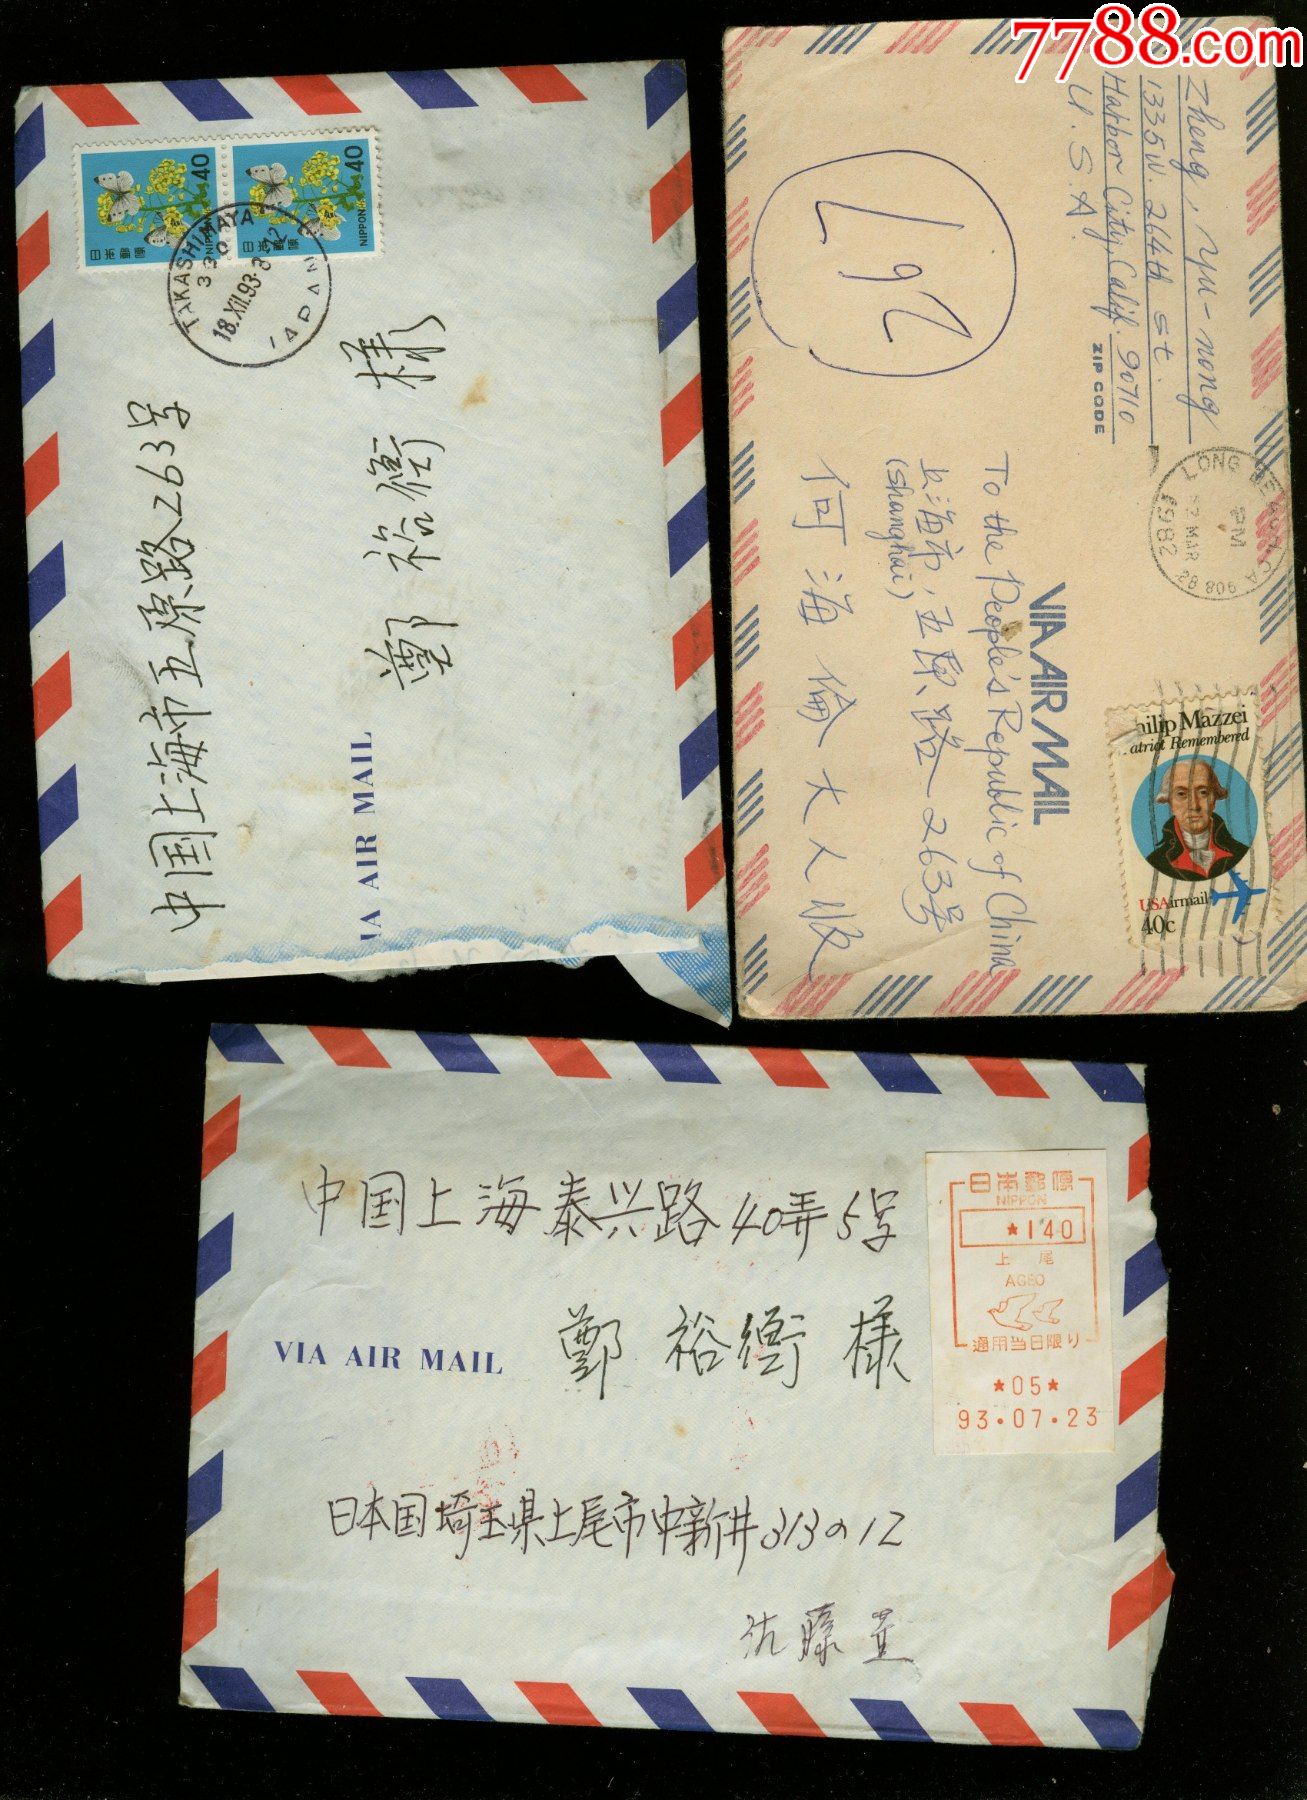 7788.com
日本郵便
NIPPON
40
日本郵便
NIPPON
40
TAKASHIMAYA
330
18.XII.93.8-12
JAPAN
中国上海市五原路263号
鄭裕衡様
VIA AIR MAIL
Zheng, Yu-nong
1335W. 264th St.
Harbor City, Calif. 90710
U.S.A.
ZIP CODE
LONG BEACH, CA
PM
MAR
1982
908
VIA AIR MAIL
To the People's Republic of China
上海市,五原路263号
(Shanghai)
何海倫大人收
Philip Mazzei
Patriot Remembered
USAirmail
40c
中国上海泰兴路40弄5号
鄭裕衡様
VIA AIR MAIL
日本国埼玉県上尾市中新井313の12
日本郵便
NIPPON
*140
上尾
AGEO
適用当日限り
*05*
93.07.23